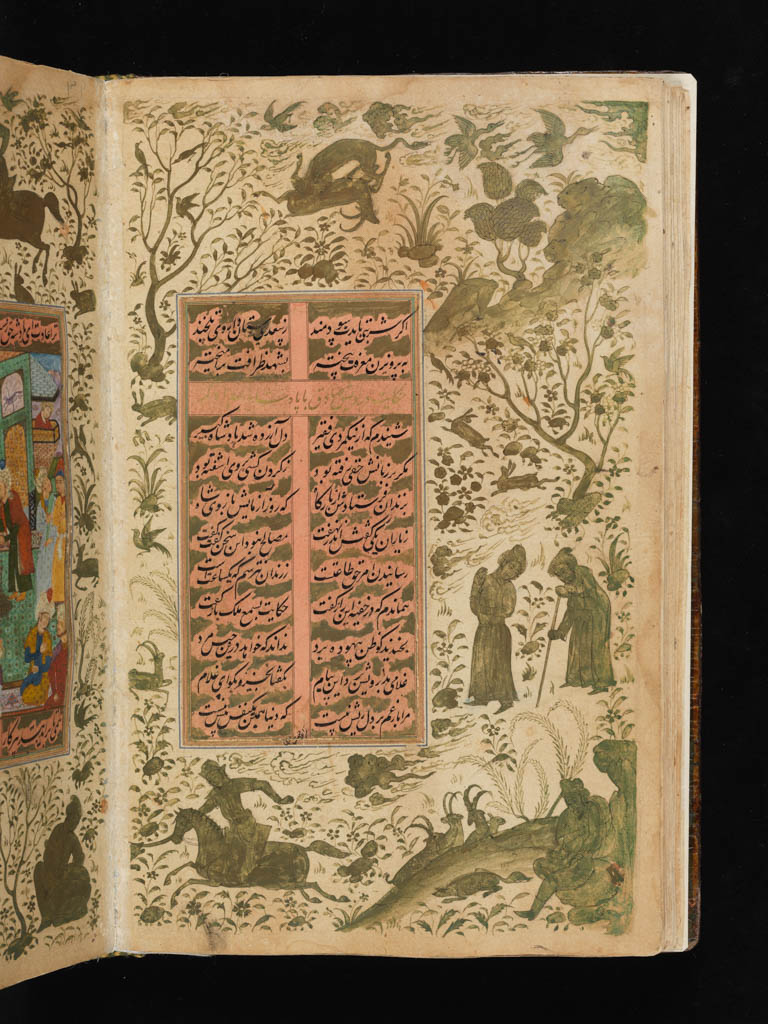 اگر شربتی بایدت سودمند ز سعدی ستان داروی تلخ پند
به پرویزن معرفت بیخته بشهد ظرافت برآمیخته
حکایت با پادشاه
شنیدم که از نیکمردی فقیر دل آزرده شد پادشاه کبیر
مگر بر زبانش حقی رفته بود ز گردن کشی بر وی آشفته بود
بزندان فرستادش از بارگاه که زورآزمایست بازوی جاه
ز یاران یکی گفتش اندر نهفت مصالح نبود این سخن گفت گفت
رسانیدن امر حق طاعتست ز زندان نترسم که یک ساعتست
هماندم که در خفیه این راز رفت حکایت بسمع ملک باز رفت
بخندید کو ظن بیهوده برد نداند که خواهد درین حبس مرد
غلامی بدرویش این پیام بگفتا بخسرو بگو ای غلام
مرا بار غم بر دل ریش نیست که دنیا همین یک نفس بیش نیست